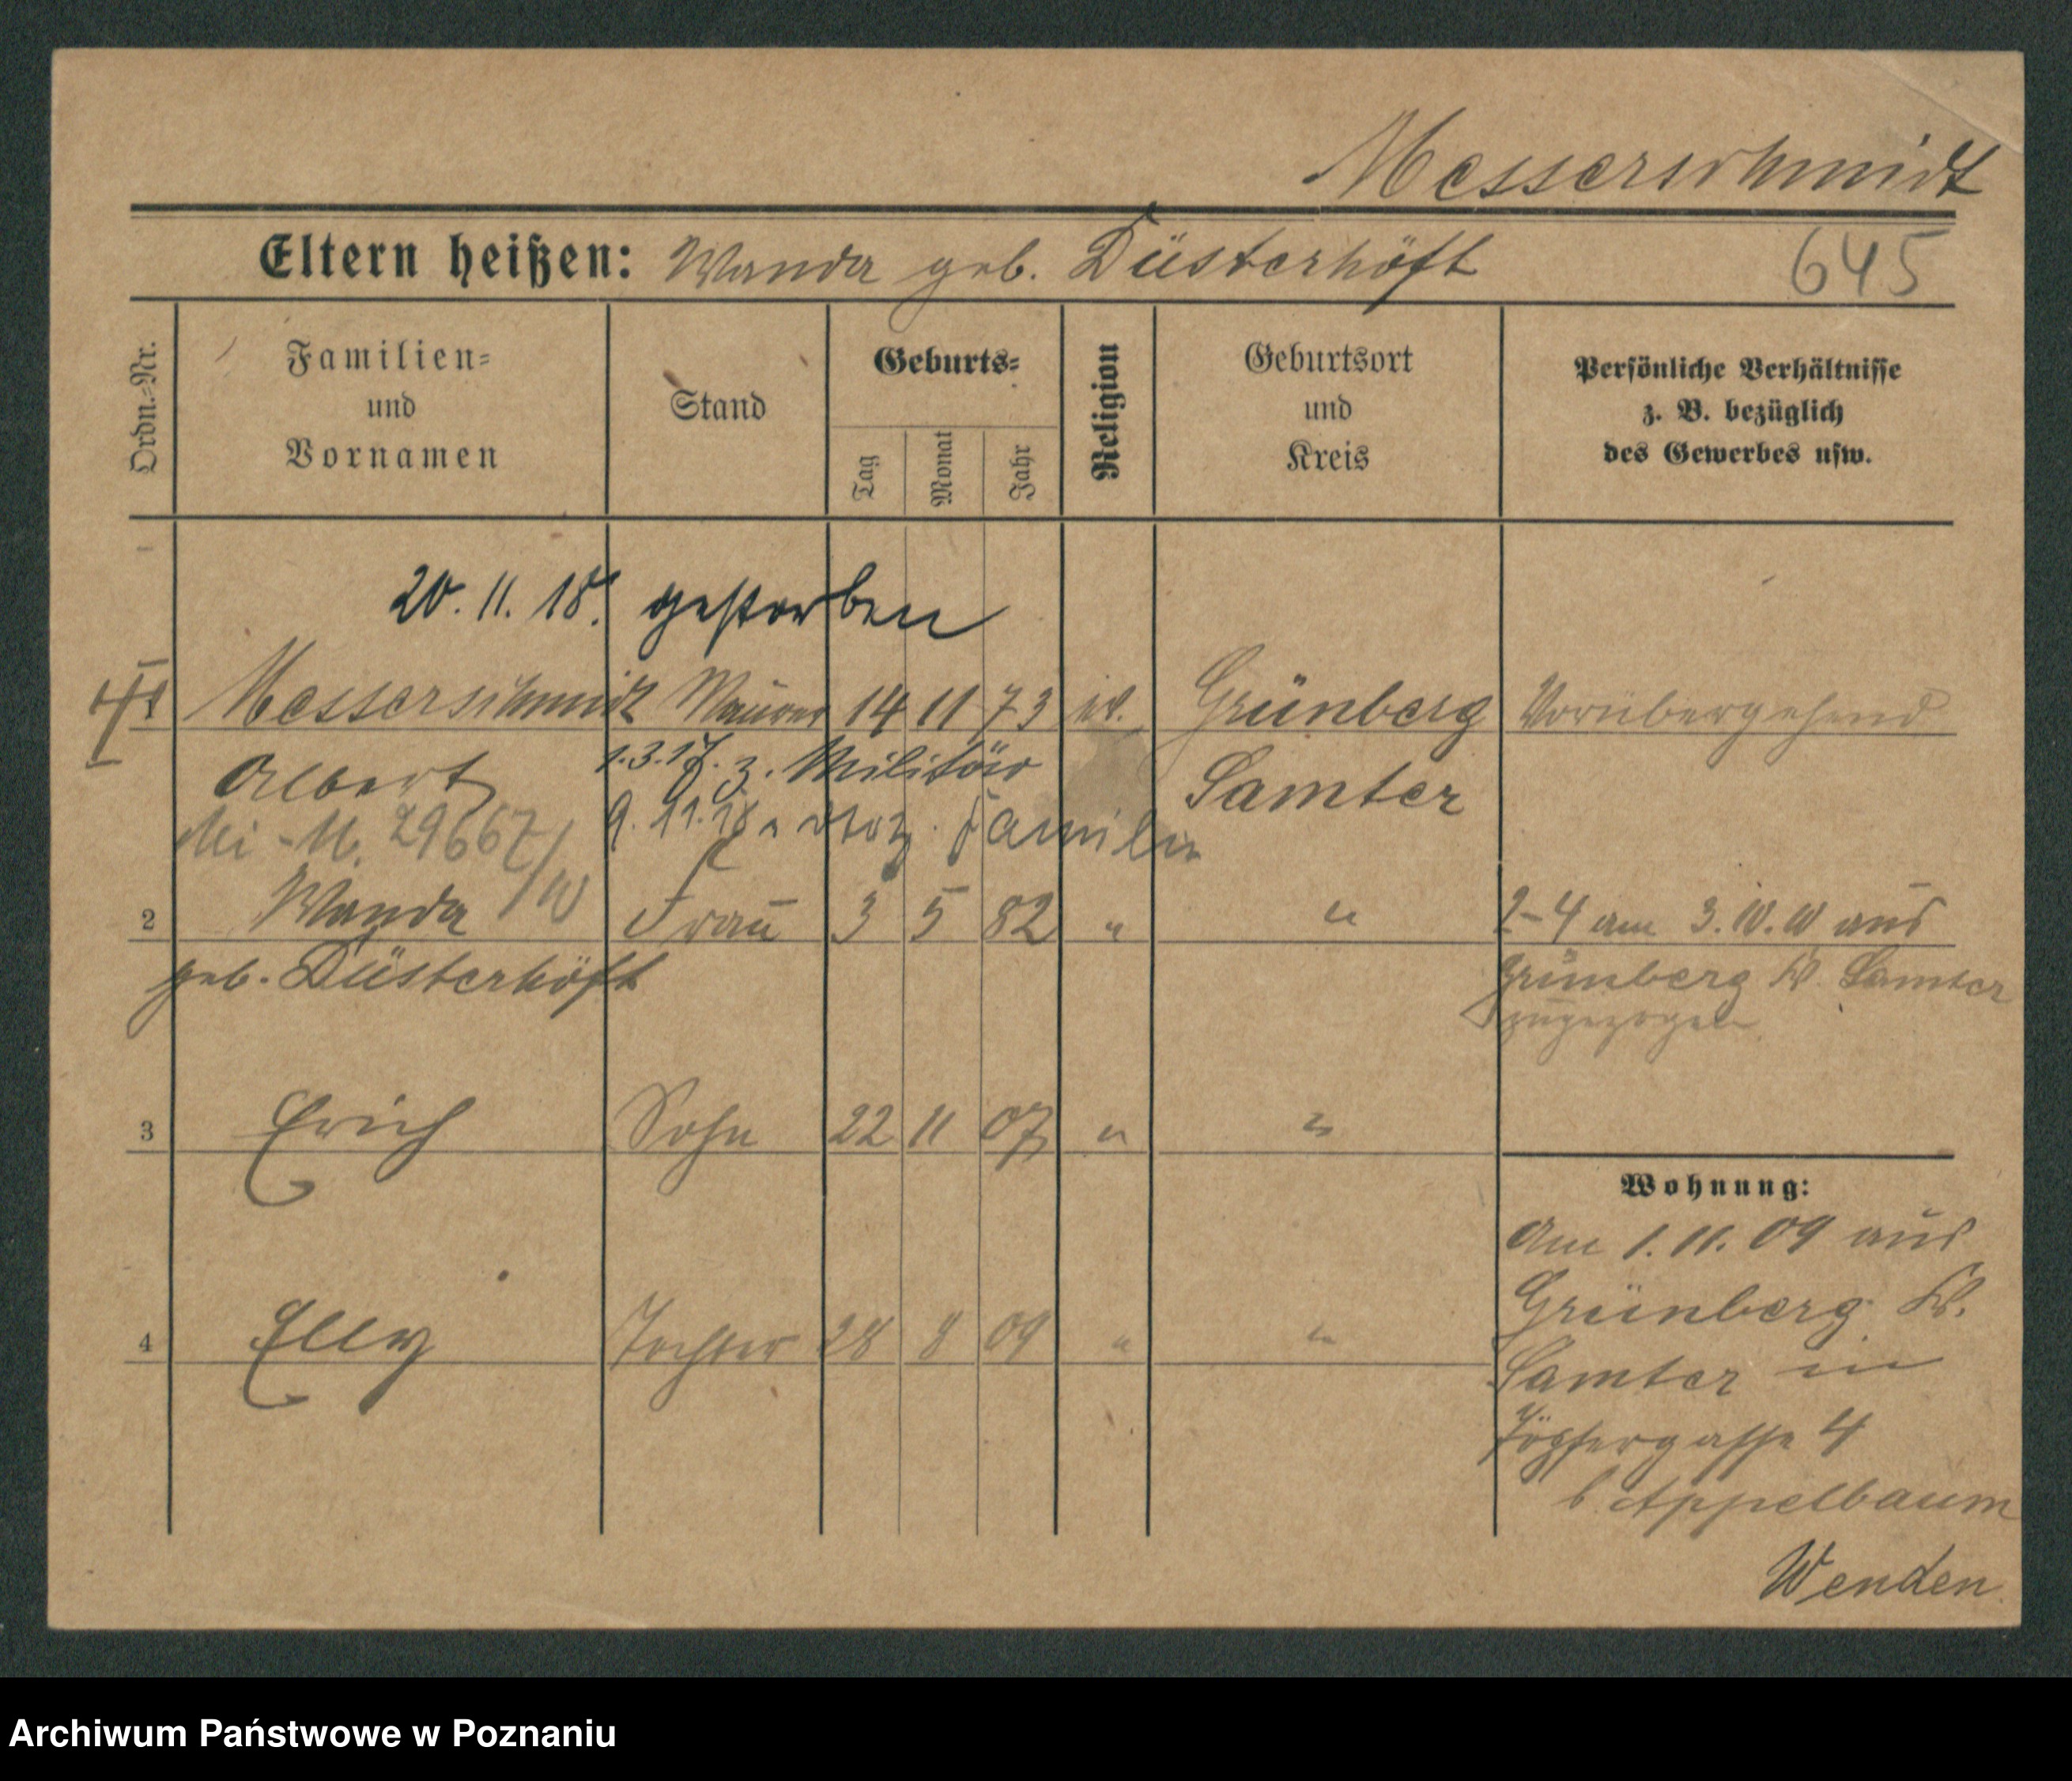 Messerschmidt
Eltern heißen: Wanda geb. Düsterhöft 645
Ordn.=Nr.
Familien=
und
Vornamen
Stand
Geburts=
Tag
Monat
Jahr
Religion
Geburtsort
und
Kreis
Persönliche Verhältnisse
z. B. bezüglich
des Gewerbes usw.
20. 11. 18. gestorben
Messerschmidt Maurer 14 11 73 ev. Grünberg Vorübergehend
Albert 1.3.17. z. Militär Samter
29667/
9. 11. 18 Familie
2 Wanda Frau 3 5 82 " " 2-4 am aus
geb. Düsterhöft Grünberg Kr. Samter
zugezogen
3 Erich Sohn 22 11 07 " "
Wohnung:
Am 1. 11. 09 aus
Grünberg Kr.
4 Elly Tochter 28 8 09 " "
Samter in
Töpfergasse 4
b. Appelbaum
Wenden
Archiwum Państwowe w Poznaniu